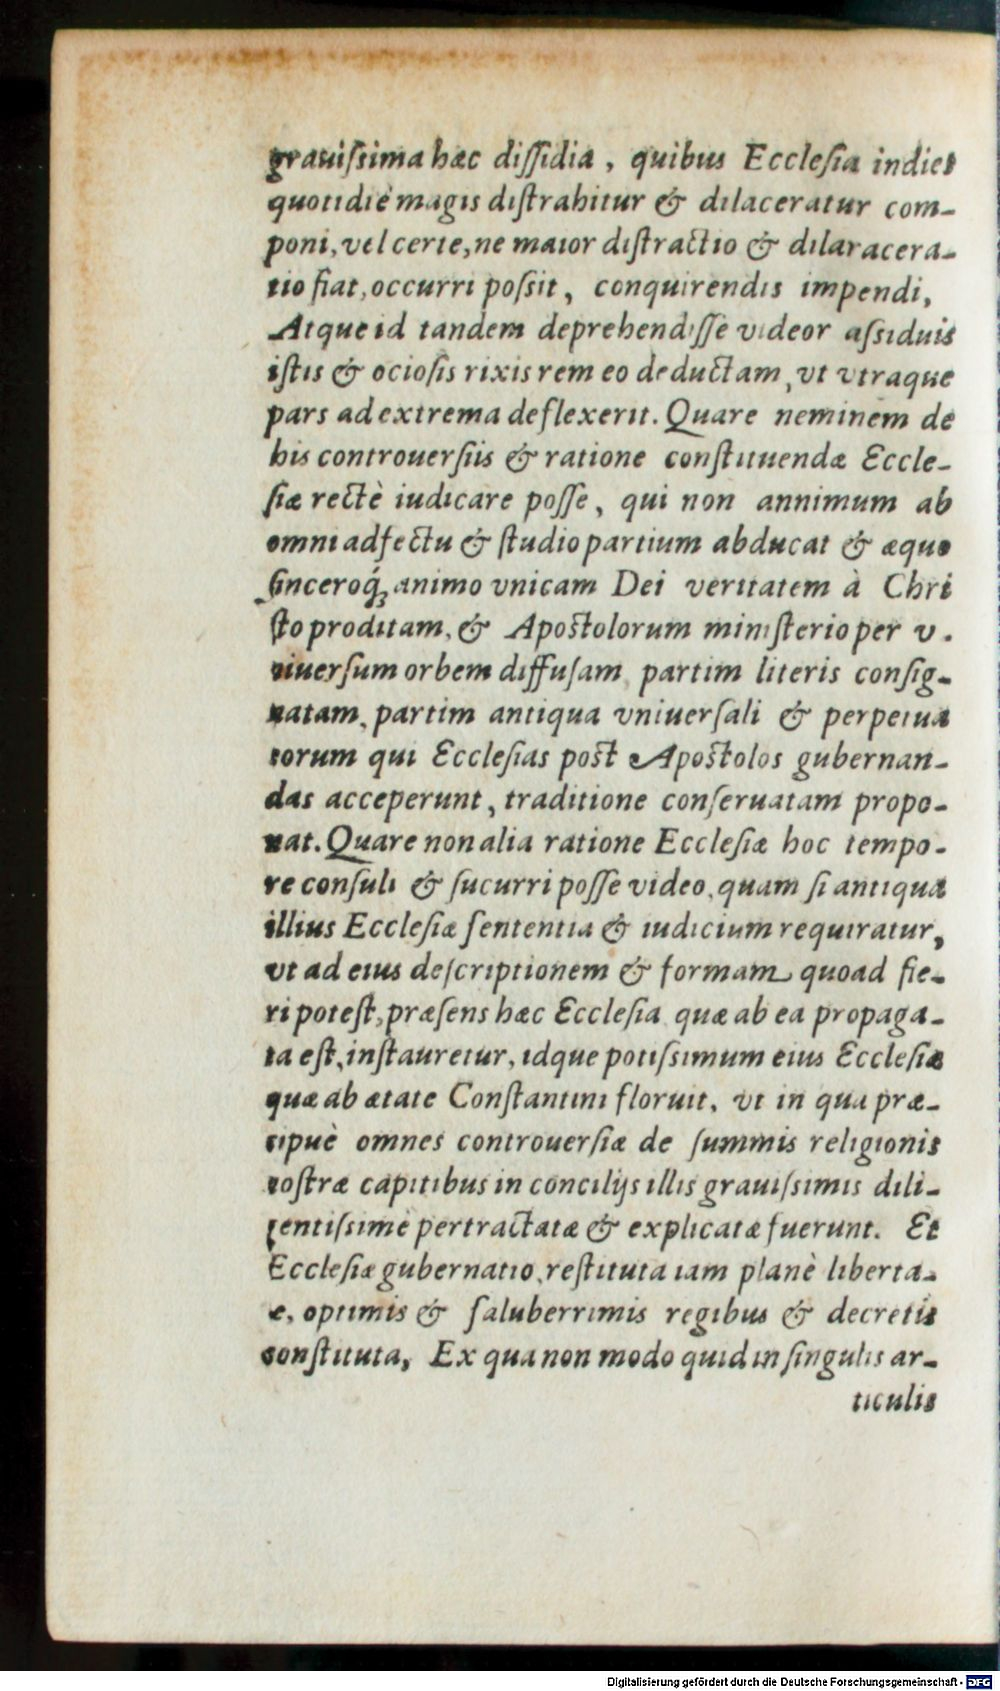 grauiſsima hæc diſſidia, quibus Eccleſia indies
quotidiè magis diſtrahitur & dilaceratur com-
poni, vel certe, ne maior diſtractio & dilaracera-
tio fiat, occurri poſsit, conquirendis impendi,
Atque id tandem deprehendiſſe videor aſsiduis
iſtis & ocioſis rixis rem eo deductam, vt vtraque
pars ad extrema deflexerit. Quare neminem de
his controuerſiis & ratione conſtituendæ Eccle-
ſiæ rectè iudicare poſſe, qui non annimum ab
omni adfectu & ſtudio partium abducat & æquo
ſinceroq́ꝫ animo vnicam Dei veritatem à Chri
ſto proditam, & Apoſtolorum miniſterio per v.
niuerſum orbem diffuſam partim literis conſig-
natam, partim antiqua vniuerſali & perpetua
eorum qui Eccleſias poſt Apoſtolos gubernan-
das acceperunt, traditione conſeruatam propo-
nat. Quare non alia ratione Eccleſiæ hoc tempo-
re conſuli & ſucurri poſſe video, quam ſi antiqua
illius Eccleſiæ ſententia & iudicium requiratur,
vt ad eius deſcriptionem & formam quoad fie-
ri poteſt, præſens hæc Eccleſia quæ ab ea propaga-
ta eſt, inſtauretur, idque potiſsimum eius Eccleſiæ
quæ ab ætate Conſtantini floruit, vt in qua præ-
cipuè omnes controuerſiæ de ſummis religionis
noſtræ capitibus in concilijs illis grauiſsimis dili-
gentiſsimè pertractatæ & explicatæ fuerunt. Et
Eccleſiæ gubernatio, reſtituta iam planè liberta-
e, optimis & ſaluberrimis regibus & decretis
conſtituta, Ex qua non modo quid in ſingulis ar-
ticulis
Digitalisierung gefördert durch die Deutsche Forschungsgemeinschaft - DFG